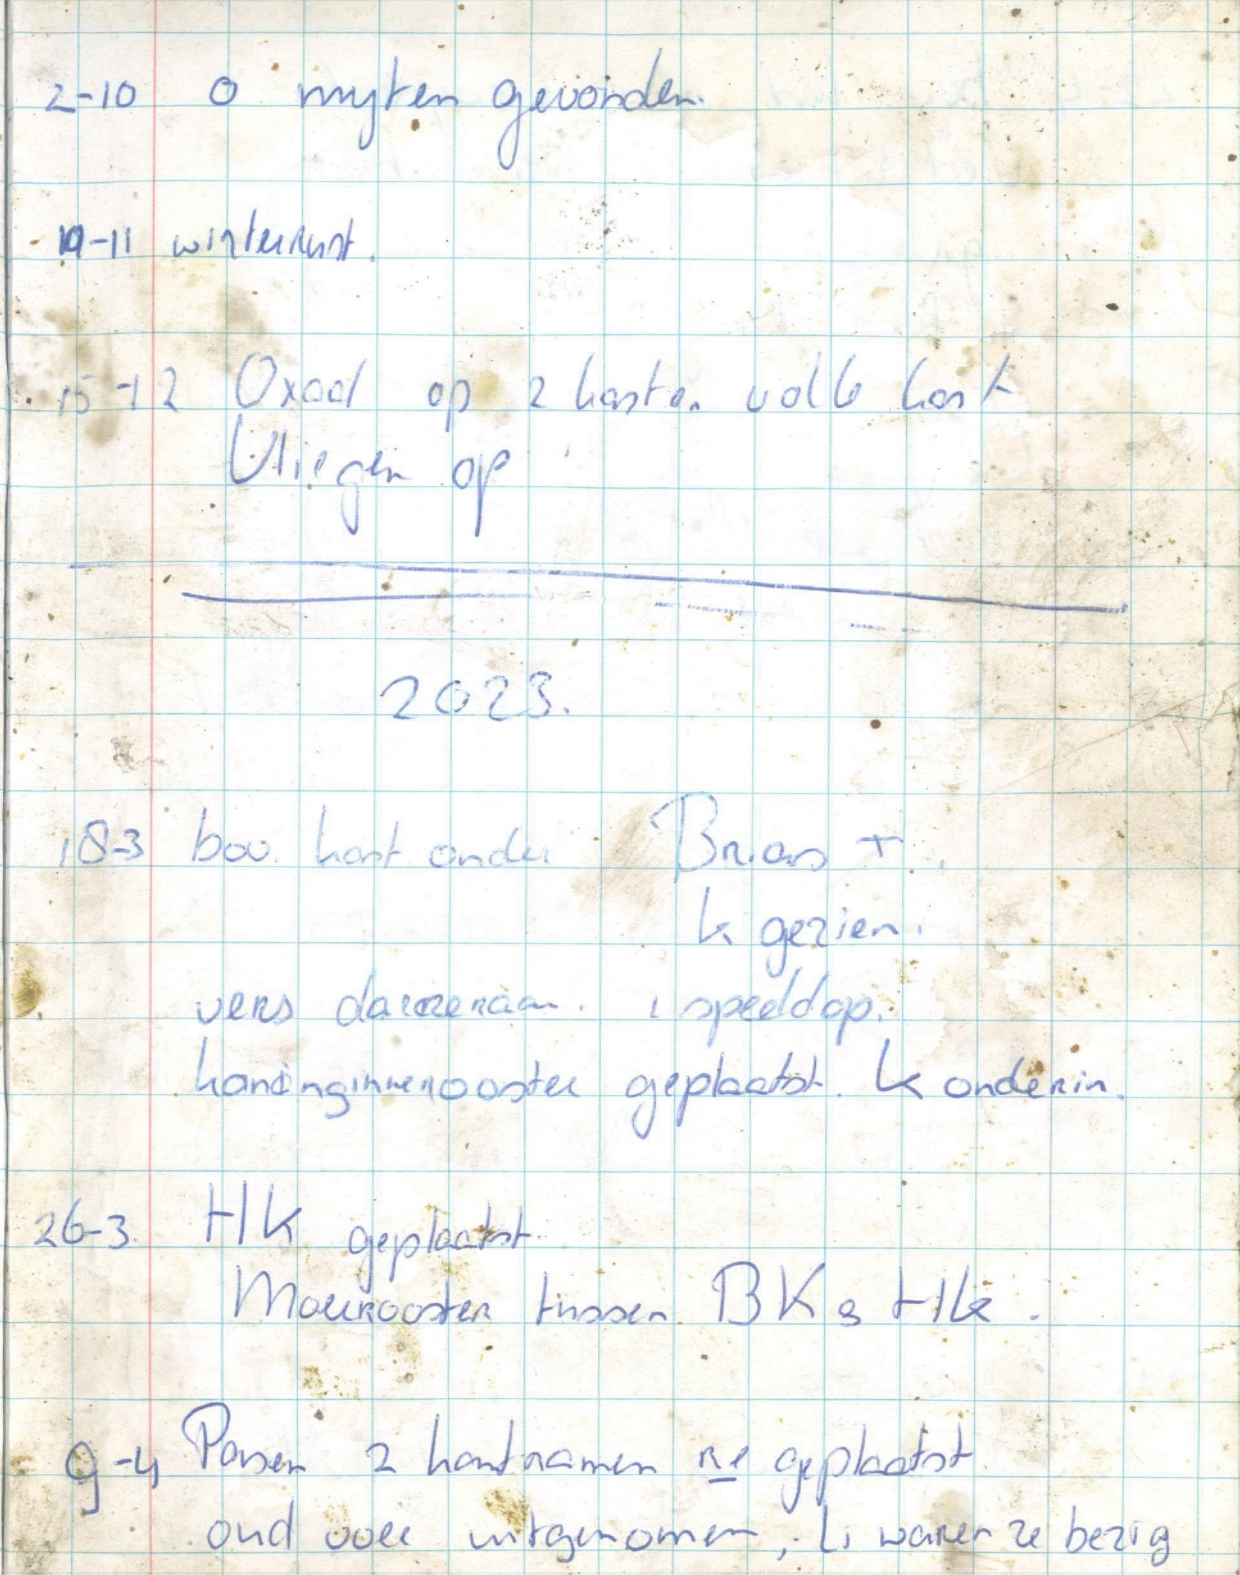 2-10 0 myten gevonden.
19-11 winterrust.
15-12 Oxaal op 2 kasten volk kast
Vliegen op
2023.
18-3 bov. kast onder Brias +.
k gezien.
vers darreraam. 1 speeldop.
honinginnerooster geplaatst. k onderin.
26-3. HK geplaatst.
Moerrooster tussen BK & HK.
9-4 Pasen 2 kantramen re geplaatst.
oud voer uitgenomen, li waren ze bezig